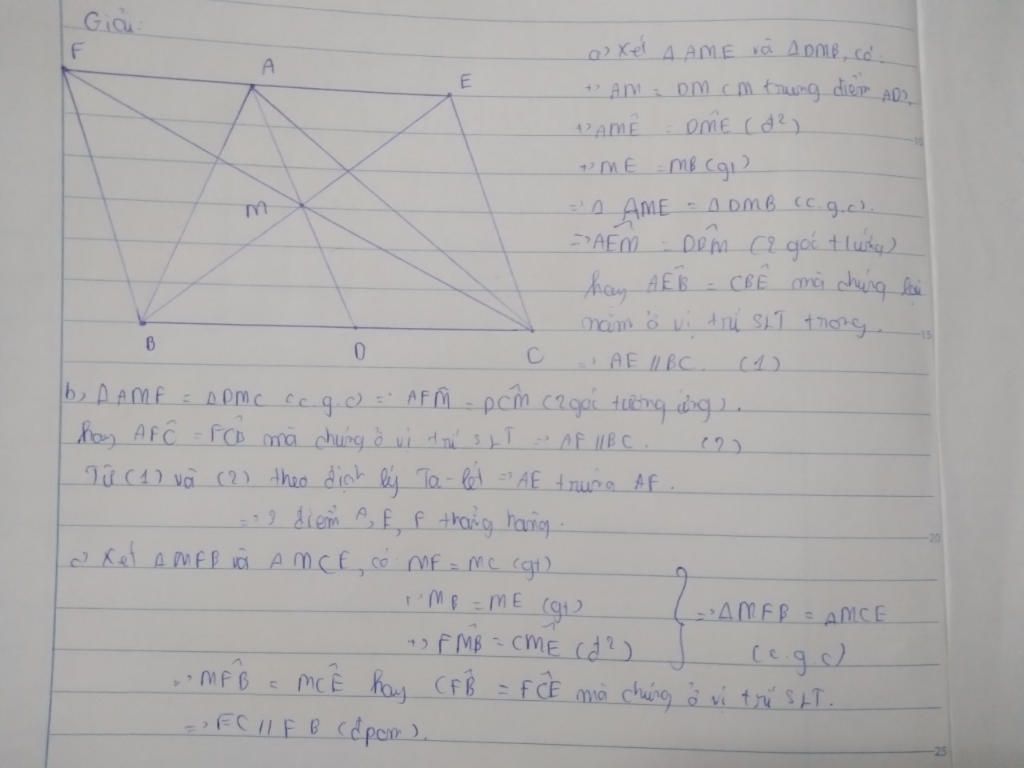 Giải:
F
A
E
M
B
D
C
a, Xét Δ AME và Δ DMB, có:
+, AM = DM (M trung điểm AD),
+, AMÊ = DMÊ (đ²)
+, ME = MB (gt)
=> Δ AME = Δ DMB (c.g.c).
=> AEM̂ = DBM̂ (2 góc tương)
hay AEB̂ = CBÊ mà chúng lại
nằm ở vị trí SLT trong.
=> AE // BC. (1)
b, Δ AMF = Δ DMC (c.g.c) => AFM̂ = DCM̂ (2 góc tương ứng).
hay AFĈ = FCB̂ mà chúng ở vị trí SLT => AF // BC. (2)
Từ (1) và (2) theo định lý Ta-lét => AE trùng AF.
=> 3 điểm A, E, F thẳng hàng.
c, Xét Δ MFB và Δ MCE, có MF = MC (gt)
+, MB = ME (gt)
+, FMB̂ = CMÊ (đ²)
=> Δ MFB = Δ MCE
(c.g.c)
=> MFB̂ = MCÊ hay CFB̂ = FCÊ mà chúng ở vị trí SLT.
=> EC // FB (đpcm).
15
20
25